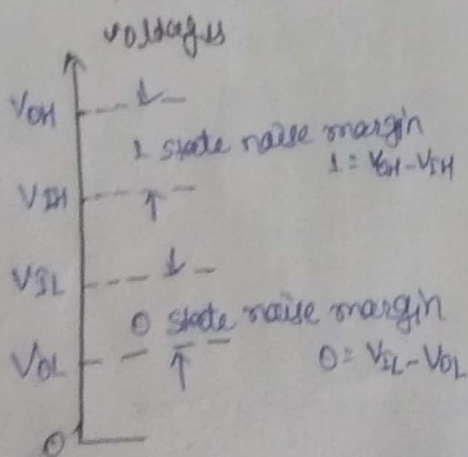 voltages
VOH
1 state noise margin
1 = VOH - VIH
VIH
VIL
0 state noise margin
VOL
0 = VIL - VOL
0